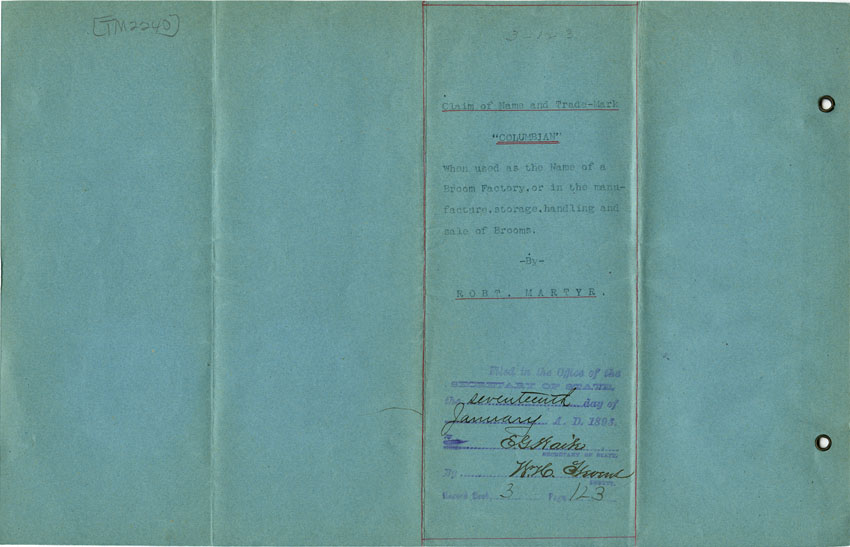 [TM2240]
3-123
Claim of Name and Trade-Mark
"COLUMBIAN"
When used as the Name of a
Broom Factory, or in the manu-
facture, storage, handling and
sale of Brooms.
-By-
ROBT. MARTYR.
Filed in the Office of the
SECRETARY OF STATE,
the seventeenth day of
January A. D. 1893.
E.G. Waite
SECRETARY OF STATE.
By W.H.
DEPUTY.
Record Book, 3 Page 123